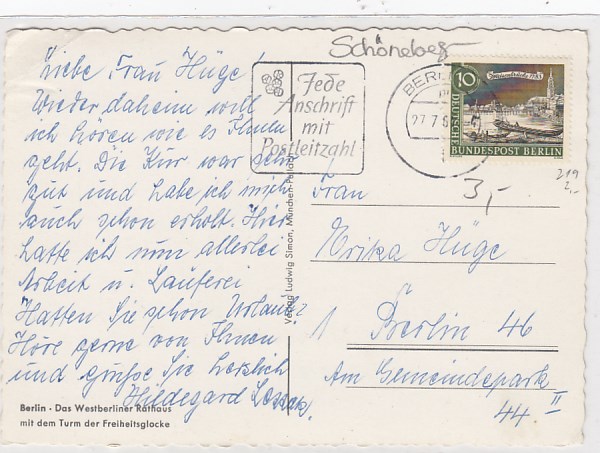 Schöneberg
Liebe Frau Hüge!
Wieder daheim will
ich hören wie es Ihnen
geht. Die Kur war sehr
gut und habe ich mich
auch schon erholt. Hier
hatte ich nun allerlei
Arbeit u. Lauferei
Hatten Sie schon Urlaub?
Höre gerne von Ihnen
und grüße Sie herzlich
Hildegard
Berlin · Das Westberliner Rathaus
mit dem Turm der Freiheitsglocke
Verlag Ludwig Simon, München-Pullach
Jede
Anschrift
mit
Postleitzahl
BERLIN
27.7.6
10
DEUTSCHE
BUNDESPOST BERLIN
219
2,-
3,-
Frau
Erika Hüge
1 Berlin 46
Am Gemeindepark
44 II